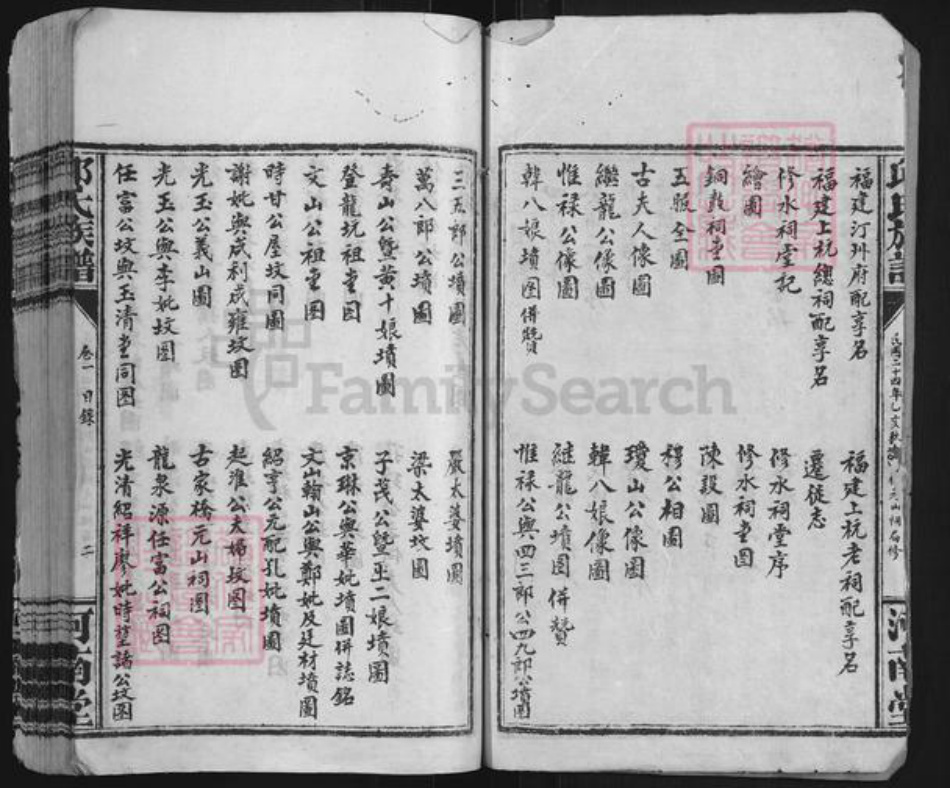 福建汀州府配享名
福建上杭老祠配享名
福建上杭總祠配享名
遷徙志
修水祠堂記
修水祠堂序
繪圖
修水祠堂图
銅鼓祠堂圖
陳設圖
五服全圖
穆公相圖
古夫人像圖
瓊山公像圖
繼龍公像圖
韓八娘像圖
惟禄公像圖
継龍公墳图併贊
韓八娘墳图併贊
惟禄公與四三郎公四九郎公墳圖
三五郎公墳圖
嚴太婆墳圖
萬八郎公墳圖
梁太婆坟圖
壽山公暨黄十娘墳圖
子茂公暨巫二娘墳圖
登龍坑祖堂図
京琳公與華妣墳圖併誌銘
文山公祖堂图
文山翰山公與鄭妣及廷材墳圖
時甘公屋坟同圖
紹亨公元配孔妣墳圖
謝妣與成利成雍坟圖
起淮公夫婦坟图
光玉公義山圖
古家橋元山祠图
光玉公與李妣坟图
龍泉源任富公祠图
任富公坟與玉清堂同图
光清紹祥廖妣時望諸公坟图
邱氏族譜
卷一 目錄
二
河南堂
FamilySearch